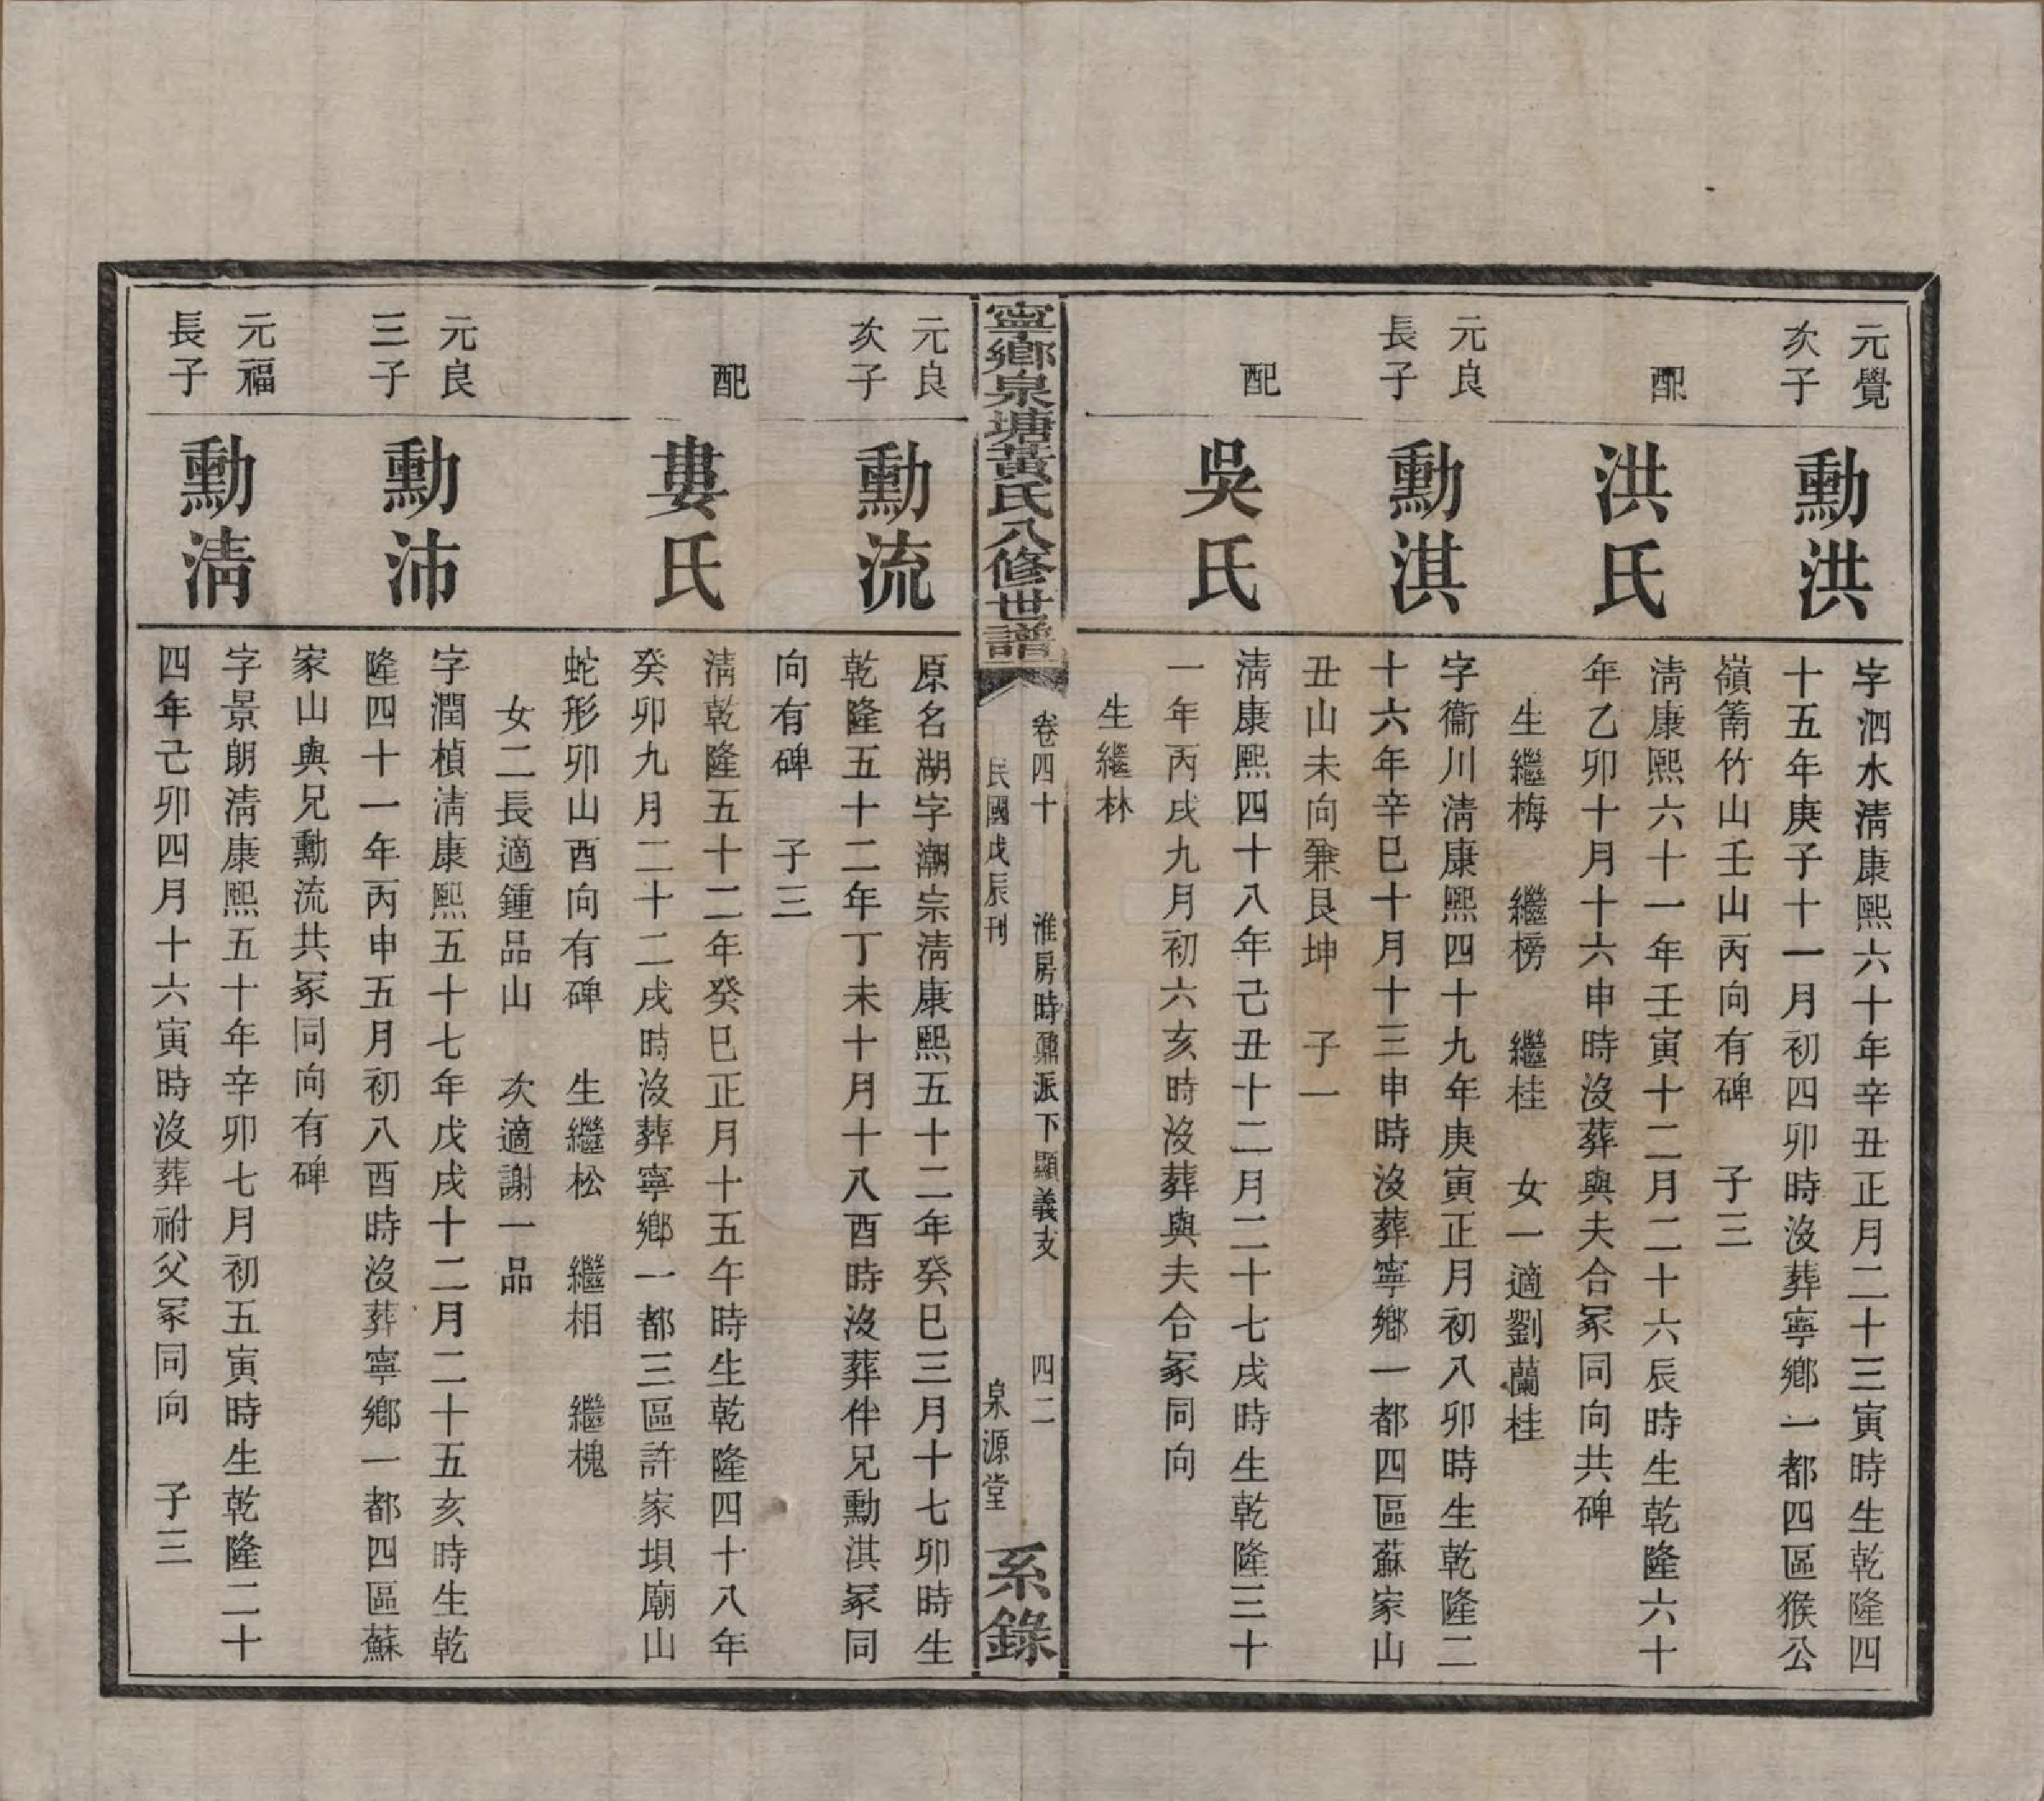 元覺
次子
勳洪
字泗水淸康熙六十年辛丑正月二十三寅時生乾隆四
十五年庚子十一月初四卯時沒葬寧鄉一都四區猴公
嶺箐竹山壬山丙向有碑　子三
配
洪氏
淸康熙六十一年壬寅十二月二十六辰時生乾隆六十
年乙卯十月十六申時沒葬與夫合冢同向共碑
生繼梅　繼榜　繼桂　女一適劉蘭桂
元良
長子
勳淇
字衞川淸康熙四十九年庚寅正月初八卯時生乾隆二
十六年辛巳十月十三申時沒葬寧鄉一都四區蘇家山
丑山未向兼艮坤　子一
配
吳氏
淸康熙四十八年己丑十二月二十七戌時生乾隆三十
一年丙戌九月初六亥時沒葬與夫合冢同向
生繼林
寧鄉泉塘黃氏八修世譜
卷四十　淮房時鼐派下顯義支　四二
民國戊辰刊　泉源堂
系錄
元良
次子
勳流
原名湖字潮宗淸康熙五十二年癸巳三月十七卯時生
乾隆五十二年丁未十月十八酉時沒葬伴兄勳淇冢同
向有碑　子三
配
婁氏
淸乾隆五十二年癸巳正月十五午時生乾隆四十八年
癸卯九月二十二戌時沒葬寧鄉一都三區許家垻廟山
蛇形卯山酉向有碑　生繼松　繼相　繼槐
女二長適鍾品山　次適謝一品
元良
三子
勳沛
字潤楨淸康熙五十七年戊戌十二月二十五亥時生乾
隆四十一年丙申五月初八酉時沒葬寧鄉一都四區蘇
家山與兄勳流共冢同向有碑
元福
長子
勳淸
字景朗淸康熙五十年辛卯七月初五寅時生乾隆二十
四年己卯四月十六寅時沒葬祔父冢同向　子三